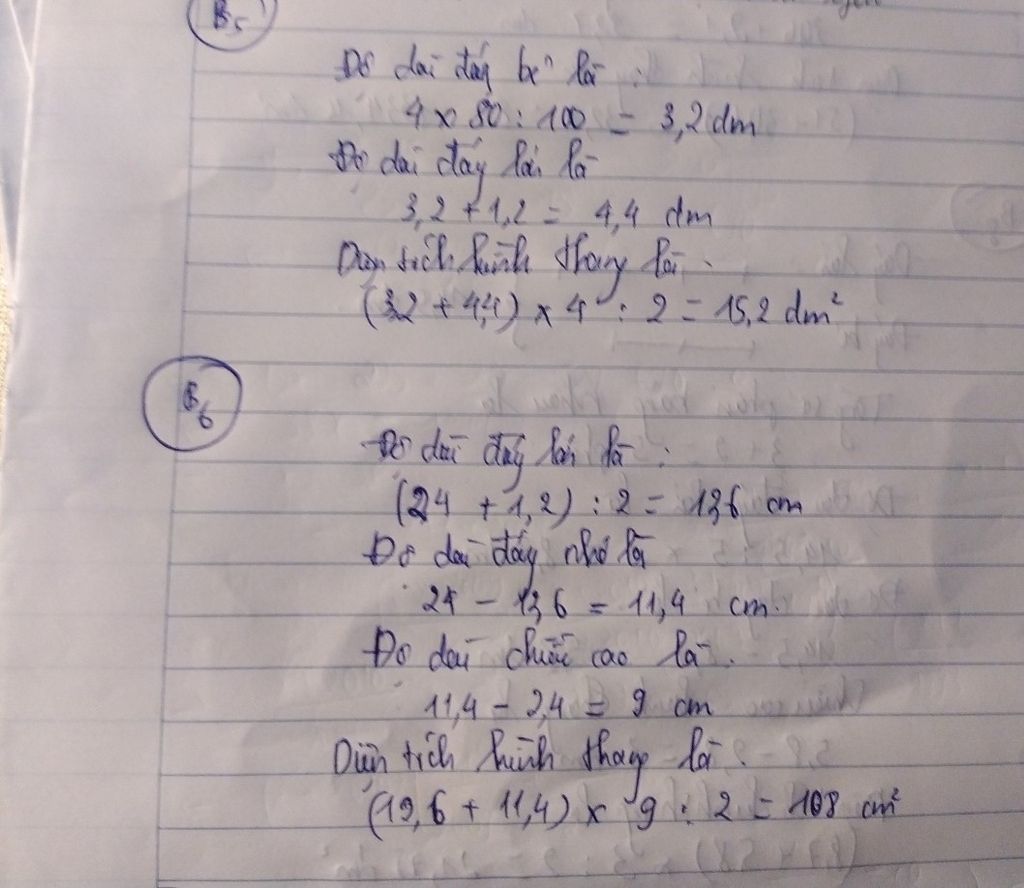 B5
Độ dài đáy bé là :
4 x 80 : 100 = 3,2 dm
Độ dài đáy lớn là
3,2 + 1,2 = 4,4 dm
Diện tích hình thang là .
(3,2 + 4,4) x 4 : 2 = 15,2 dm²
B6
Độ dài đáy lớn là :
(24 + 1,2) : 2 = 12,6 cm
Độ dài đáy nhỏ là
24 - 12,6 = 11,4 cm.
Độ dài chiều cao là .
11,4 - 2,4 = 9 cm
Diện tích hình thang là .
(12,6 + 11,4) x 9 : 2 = 108 cm²